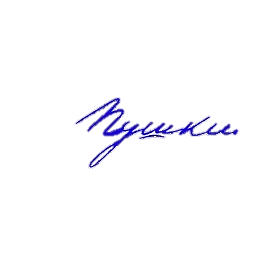 Пушки.